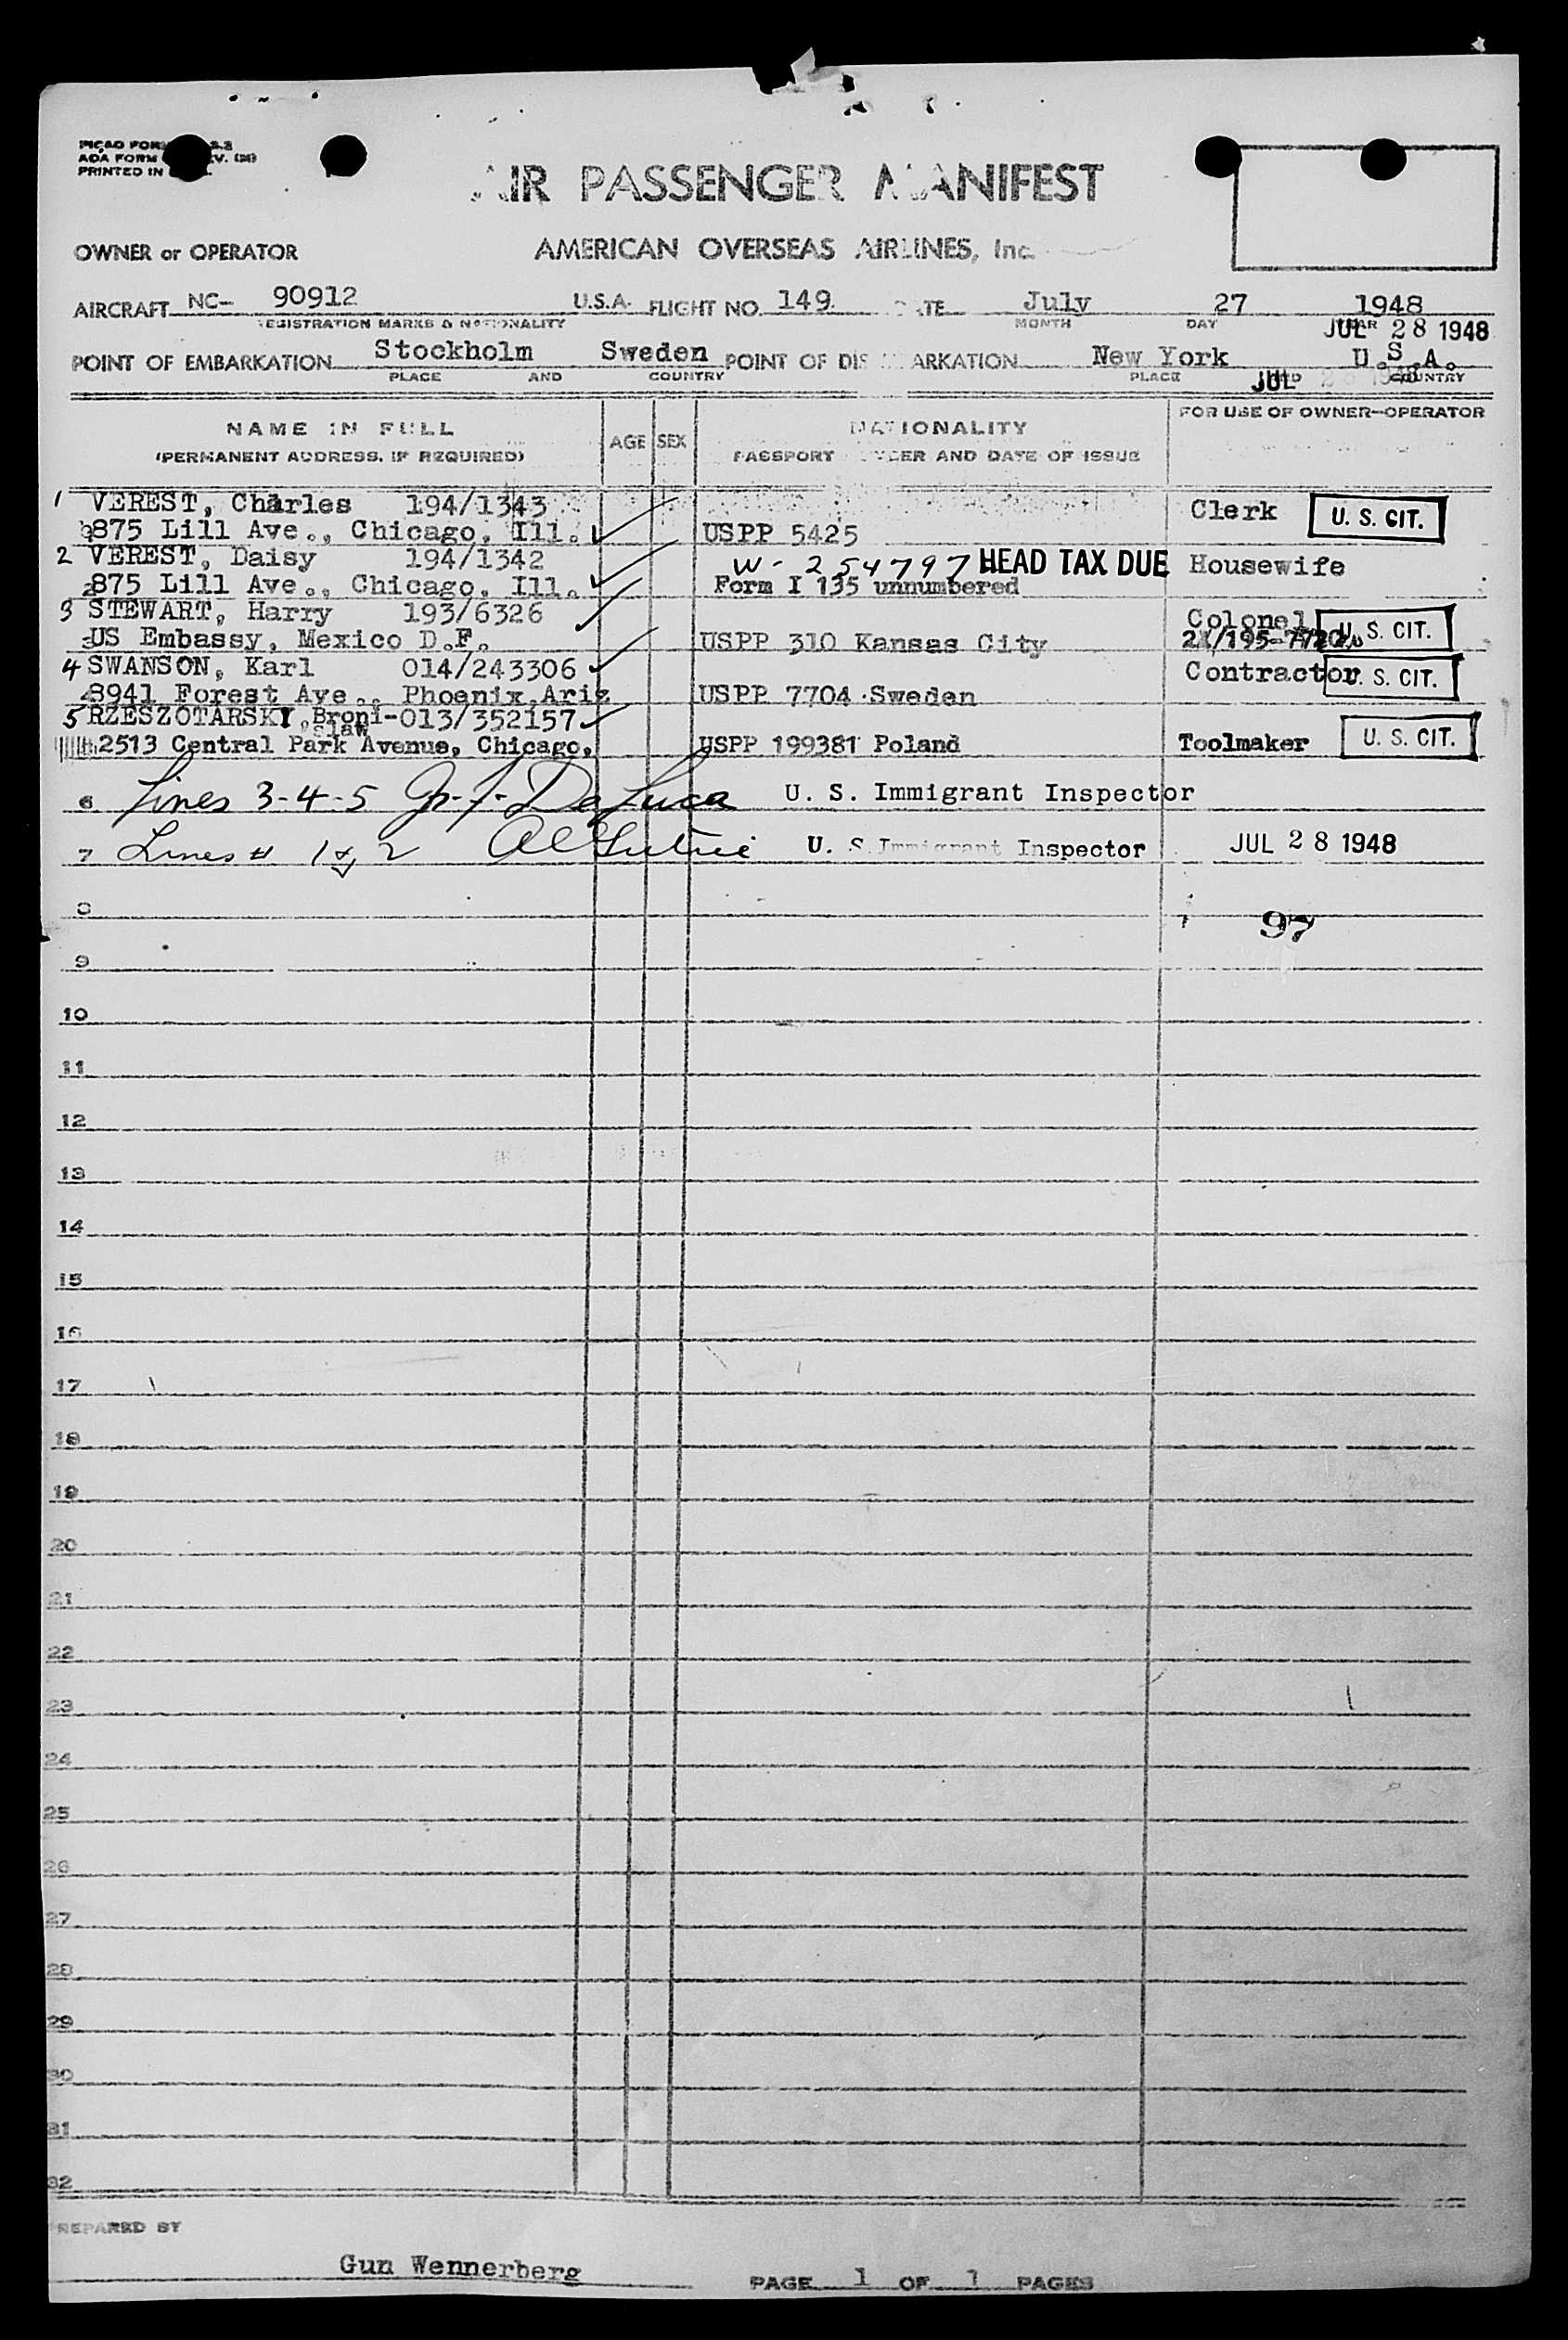 PRINTED IN
AIR PASSENGER MANIFEST
OWNER or OPERATOR AMERICAN OVERSEAS AIRLINES, Inc.
AIRCRAFT NC- 90912 U.S.A. FLIGHT NO. 149 DATE July 27 1948
REGISTRATION MARKS & NATIONALITY MONTH DAY
JUL 28 1948
POINT OF EMBARKATION Stockholm Sweden POINT OF DISEMBARKATION New York U.S.A.
PLACE AND COUNTRY PLACE COUNTRY
JUL 28 1948
NAME IN FULL AGE SEX NATIONALITY FOR USE OF OWNER-OPERATOR
(PERMANENT ADDRESS, IF REQUIRED) PASSPORT NUMBER AND DATE OF ISSUE
1 VEREST, Charles 194/1343 Clerk U. S. CIT.
875 Lill Ave., Chicago, Ill. USPP 5425
2 VEREST, Daisy 194/1342 W- 254797 HEAD TAX DUE Housewife
875 Lill Ave., Chicago, Ill. Form I 135 unnumbered
3 STEWART, Harry 193/6326 Colonel U. S. CIT.
US Embassy, Mexico D.F. USPP 310 Kansas City
4 SWANSON, Karl 014/243306 Contractor U. S. CIT.
3941 Forest Ave., Phoenix, Ariz USPP 7704 Sweden
5 RZESZOTARSKI, Broni-013/352157
slaw
2513 Central Park Avenue, Chicago, USPP 199381 Poland Toolmaker U. S. CIT.
6 Lines 3-4-5 U. S. Immigrant Inspector
7 Lines # 1 & 2 U. S. Immigrant Inspector JUL 28 1948
8 97
9
10
11
12
13
14
15
16
17
18
19
20
21
22
23
24
25
26
27
28
29
30
31
32
PREPARED BY
Gun Wennerberg PAGE 1 OF 1 PAGES